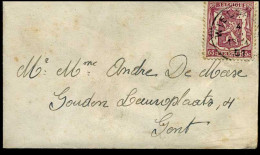 BELGIQUE
Mr Mme Andre De Maese
Gouden Leeuwplaats, 4
Gent